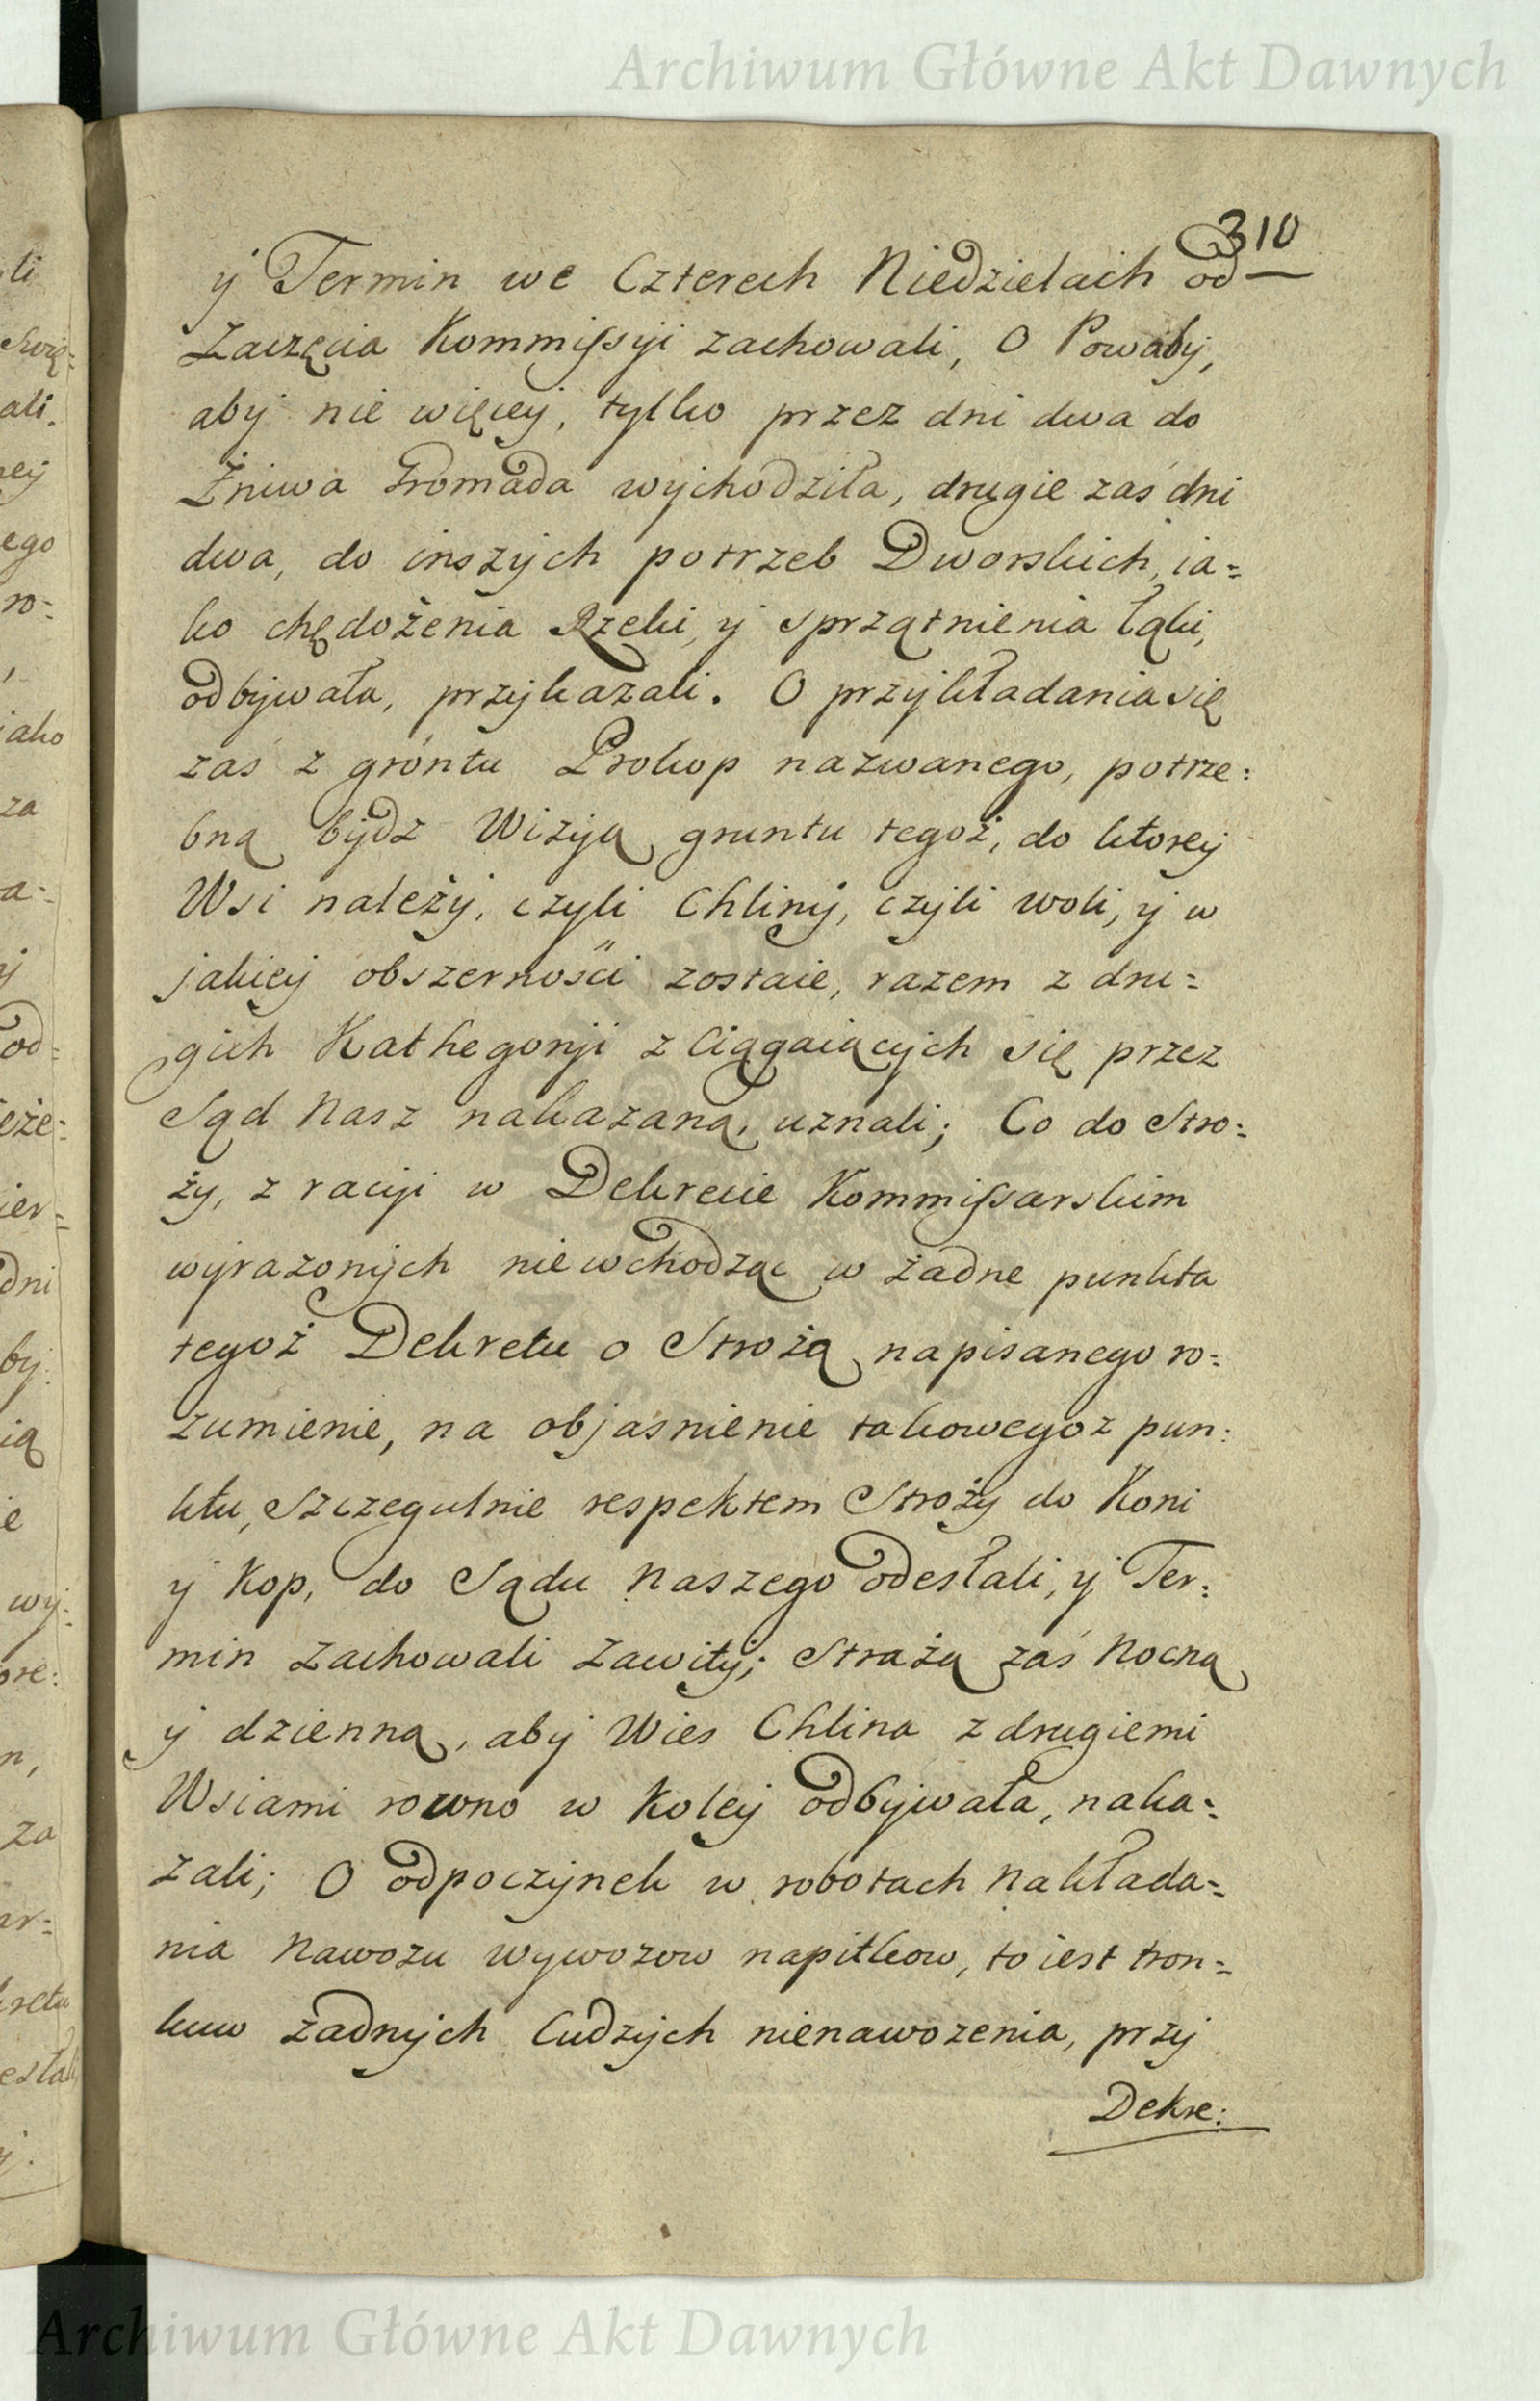 Archiwum Główne Akt Dawnych
310
y Termin we Czterech Niedzielach od
Zaczęcia Kommissyi zachowali, O Powaby,
aby nie więcey, tylko przez dni dwa do
Żniwa Gromada wychodziła, drugie zaś dni
dwa, do inszych potrzeb Dworskich, ia=
ko chędożenia Rzeki, y sprzątnienia łąki,
odbywała, przykazali. O przykładania się
zaś z gróntu Prokop nazwanego, potrze:
bną bydz Wizyą gruntu tegoż, do ktorey
Wsi należy, czyli Chliny, czyli woli, y w
jakiey obszerności zostaie, razem z dru=
gich Kathegoryi zciągaiących się przez
Sąd Nasz nakazaną, uznali; Co do Stro=
ży, z racyi w Dekrecie Kommissarskim
wyrazonych nie wchodząc w żadne punkta
tegoż Dekretu o Strożą napisanego ro=
zumienie, na objasnienie takowegoz pun:
ktu, Szczegulnie respektem Stroży do Koni
y Kop, do Sądu Naszego odesłali, y Ter:
min zachowali zawity; Strażą zaś Nocną
y dzienną, aby Wies Chlina z drugiemi
Wsiami rowno w Koley odbywała, naka=
zali; O odpoczynek w robotach Nakłada=
nia Nawozu wywozow napitkow, to iest tron=
kuw żadnych Cudzych nienawozenia, przy
Dekre:
Archiwum Główne Akt Dawnych